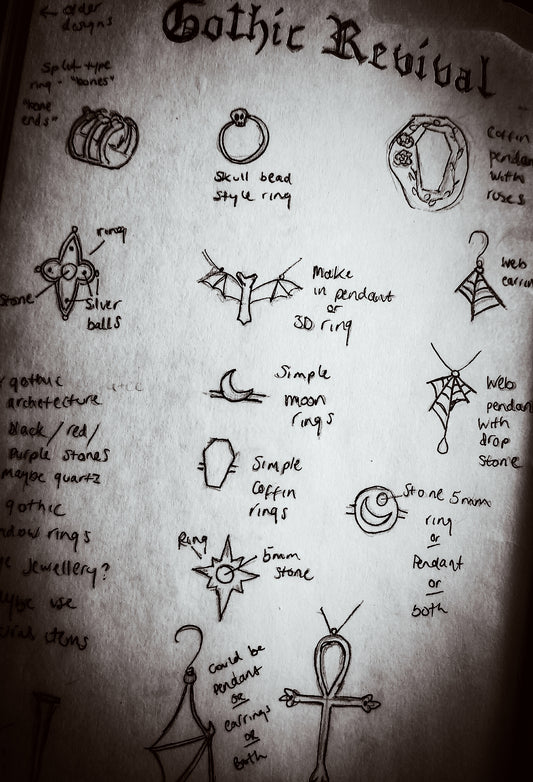 ← older
designs
Gothic Revival
split-type
ring - "bones"
"bone
ends"
Skull bead
style ring
Coffin
pendan
with
roses
ring
Stone
Silver
balls
Make
in pendant
or
3D ring
Web
earrin
Simple
moon
rings
Web
pendan
with
drop
stone
gothic
architecture
black/red/
purple stones
maybe quartz
gothic
ndow rings
Jewellery?
ybe use
items
Simple
Coffin
rings
Stone 5mm
ring
or
Pendant
or
both
Ring
5mm
Stone
Could be
pendant
or
earrings
or
Both